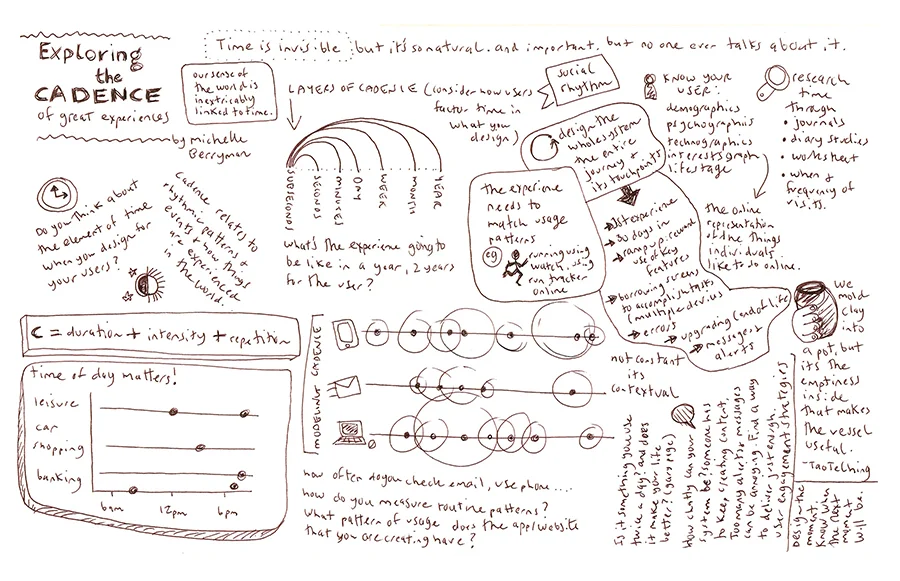 Exploring
the
CADENCE
of great experiences
by michelle
Berryman
Time is invisible but it's so natural. and important. but no one ever talks about it.
our sense of
the world is
inextricably
linked to time.
LAYERS OF CADENCE (consider how users
factor time in
what you
design)
SUBSECONDS
SECONDS
MINUTES
DAY
WEEK
MONTH
YEAR
what's the experience going to
be like in a year, 2 years
for the user?
Do you think about
the element of time
when you design for
your users?
Cadence relates to
rhythmic patterns &
events & how things
are experienced
in the world.
social
rhythm
design the
whole system
the entire
journey +
its touchpoints
the experience
needs to
match usage
patterns
eg
running using
watch, using
run tracker
online
1st experience
30 days in
ramp up, recount
use of key
features
borrowing screens
to accomplish tasks
(multiple devices
errors
upgrading (end of life)
messages +
alerts
KNOW YOUR
USER:
demographics
psychographics
technographics
interests graph
lifestage
research
time
through
• journals
• diary studies
• worksheet
• when &
frequency of
visits.
the online
representation
of the things
individuals
like to do online.
C = duration + intensity + repetition
time of day matters!
leisure
car
shopping
banking
6am
12pm
6pm
MODELING CADENCE
not constant
its
contextual
how often do you check email, use phone....
how do you measure routine patterns?
What pattern of usage does the app/website
that you are creating have?
Is it something you use
twice a day? and does
it make your life
better? (Larry page)
How chatty can your
system be? Someone has
to keep creating content.
Too many alerts & messages
can be annoying. Find a way
to deliver just enough.
user engagement strategies
We
mold
clay
into
a pot, but
it's the
emptiness
inside
that makes
the vessel
useful.
- Tao Te Ching
Design the
moment.
Know when
the next
moment
will be.